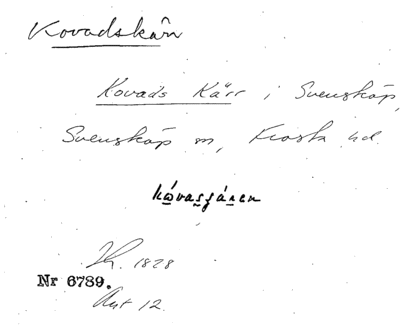 Kovadskärr
Kovads Kärr i Svensköp,
Svensköp sn, Frosta hd.
kóvasjáren
1828
Nr 6789.
Akt 12.